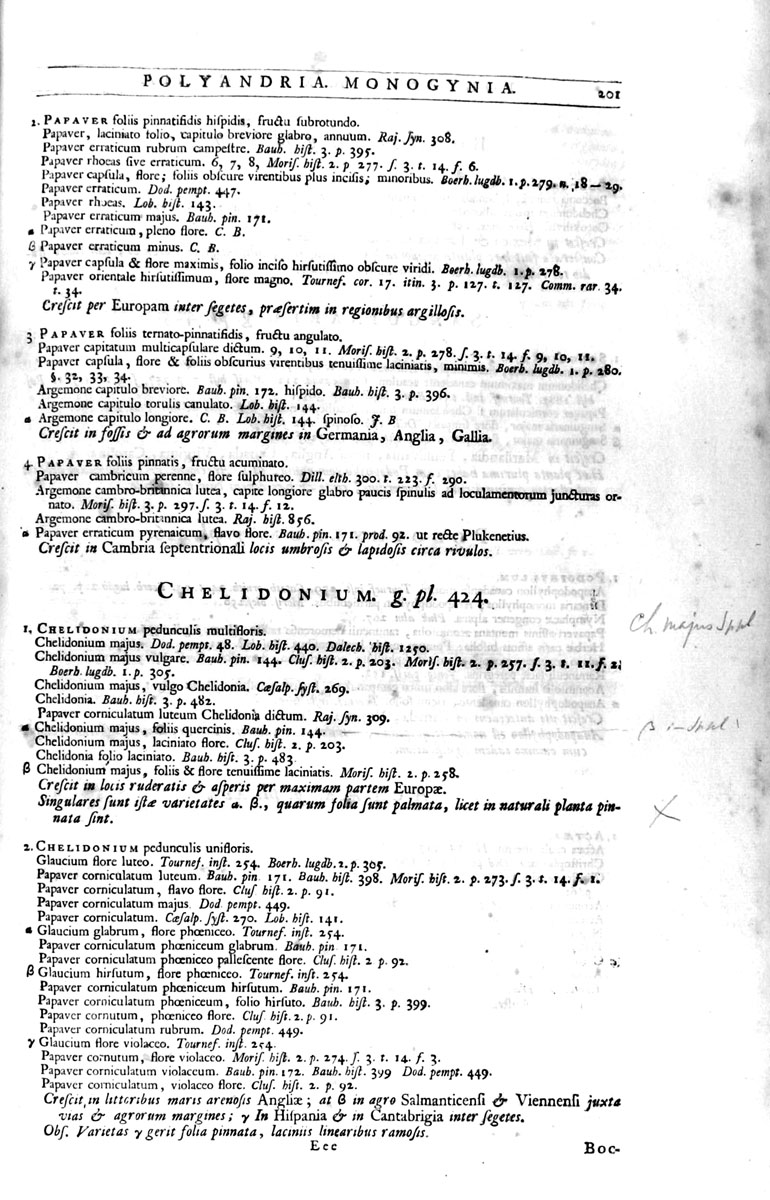 POLYANDRIA. MONOGYNIA. 201
2. PAPAVER foliis pinnatifidis hiſpidis, fructu ſubrotundo.
Papaver, laciniato folio, capitulo breviore glabro, annuum. Raj. ſyn. 308.
Papaver erraticum rubrum campeſtre. Bauh. hiſt. 3. p. 395.
Papaver rhoeas ſive erraticum. 6, 7, 8, Moriſ. hiſt. 2. p 277. ſ. 3. t. 14. f. 6.
Papaver capſula, flore; foliis obſcure virentibus plus inciſis; minoribus. Boerh. lugdb. 1. p. 279. n. 18 — 29.
Papaver erraticum. Dod. pempt. 447.
Papaver rhœas. Lob. hiſt. 143.
Papaver erraticum majus. Bauh. pin. 171.
α Papaver erraticum, pleno flore. C. B.
β Papaver erraticum minus. C. B.
γ Papaver capſula & flore maximis, folio inciſo hirſutiſſimo obſcure viridi. Boerh. lugdb. 1. p. 278.
Papaver orientale hirſutiſſimum, flore magno. Tournef. cor. 17. itin. 3. p. 127. t. 127. Comm. rar. 34.
t. 34.
Creſcit per Europam inter ſegetes, præſertim in regionibus argilloſis.
3 PAPAVER foliis ternato-pinnatifidis, fructu angulato.
Papaver capitatum multicapſulare dictum. 9, 10, 11. Moriſ. hiſt. 2. p. 278. ſ. 3. t. 14. f. 9, 10, 11.
Papaver capſula, flore & foliis obſcurius virentibus tenuiſſime laciniatis, minimis. Boerh. lugdb. 1. p. 280.
§. 32, 33, 34.
Argemone capitulo breviore. Bauh. pin. 172. hiſpido. Bauh. hiſt. 3. p. 396.
Argemone capitulo torulis canulato. Lob. hiſt. 144.
α Argemone capitulo longiore. C. B. Lob. hiſt. 144. ſpinoſo. J. B
Creſcit in foſſis & ad agrorum margines in Germania, Anglia, Gallia.
4 PAPAVER foliis pinnatis, fructu acuminato.
Papaver cambricum perenne, flore ſulphureo. Dill. elth. 300. t. 223. f. 290.
Argemone cambro-britannica lutea, capite longiore glabro paucis ſpinulis ad loculamentorum juncturas or-
nato. Moriſ. hiſt. 3. p. 297. ſ. 3. t. 14. f. 12.
Argemone cambro-britannica lutea. Raj. hiſt. 856.
α Papaver erraticum pyrenaicum, flavo flore. Bauh. pin. 171. prod. 92. ut recte Plukenetius.
Creſcit in Cambria ſeptentrionali locis umbroſis & lapidoſis circa rivulos.
CHELIDONIUM. g. pl. 424.
1. CHELIDONIUM pedunculis multifloris.
Chelidonium majus. Dod. pempt. 48. Lob. hiſt. 440. Dalech. hiſt. 1250.
Chelidonium majus vulgare. Bauh. pin. 144. Cluſ. hiſt. 2. p. 203. Moriſ. hiſt. 2. p. 257. ſ. 3. t. 11. f. 1;
Boerh. lugdb. 1. p. 305.
Chelidonium majus, vulgo Chelidonia. Cæſalp. ſyſt. 269.
Chelidonia. Bauh. hiſt. 3. p. 482.
Papaver corniculatum luteum Chelidonia dictum. Raj. ſyn. 309.
α Chelidonium majus, foliis quercinis. Bauh. pin. 144.
Chelidonium majus, laciniato flore. Cluſ. hiſt. 2. p. 203.
Chelidonia folio laciniato. Bauh. hiſt. 3. p. 483
β Chelidonium majus, foliis & flore tenuiſſime laciniatis. Moriſ. hiſt. 2. p. 258.
Creſcit in locis ruderatis & aſperis per maximam partem Europæ.
Singulares ſunt iſtæ varietates α. β., quarum folia ſunt palmata, licet in naturali planta pin-
nata ſint.
Ch. majus Sp pl
2. CHELIDONIUM pedunculis unifloris.
Glaucium flore luteo. Tournef. inſt. 254. Boerh. lugdb. 2. p. 305.
Papaver corniculatum luteum. Bauh. pin 171. Bauh. hiſt. 398. Moriſ. hiſt. 2. p. 273. ſ. 3. t. 14. f. 1.
Papaver corniculatum, flavo flore. Cluſ hiſt. 2. p. 91.
Papaver corniculatum majus. Dod pempt. 449.
Papaver corniculatum. Cæſalp. ſyſt. 270. Lob. hiſt. 141.
α Glaucium glabrum, flore phœniceo. Tournef. inſt. 254.
Papaver corniculatum phœniceum glabrum. Bauh. pin 171.
Papaver corniculatum phœniceo palleſcente flore. Cluſ. hiſt. 2 p. 92.
β Glaucium hirſutum, flore phœniceo. Tournef. inſt. 254.
Papaver corniculatum phœniceum hirſutum. Bauh. pin. 171.
Papaver corniculatum phœniceum, folio hirſuto. Bauh. hiſt. 3. p. 399.
Papaver cornutum, phœniceo flore. Cluſ hiſt. 2. p. 91.
Papaver corniculatum rubrum. Dod. pempt. 449.
γ Glaucium flore violaceo. Tournef. inſt. 254.
Papaver cornutum, flore violaceo. Moriſ. hiſt. 2. p. 274. ſ. 3. t. 14. f. 3.
Papaver corniculatum violaceum. Bauh. pin. 172. Bauh. hiſt. 399 Dod. pempt. 449.
Papaver corniculatum, violaceo flore. Cluſ. hiſt. 2. p. 92.
Creſcit in littoribus maris arenoſis Angliæ; at β in agro Salmanticenſi & Viennenſi juxta
vias & agrorum margines; γ In Hiſpania & in Cantabrigia inter ſegetes.
Obſ. Varietas γ gerit folia pinnata, laciniis linearibus ramoſis.
Ecc Boc-